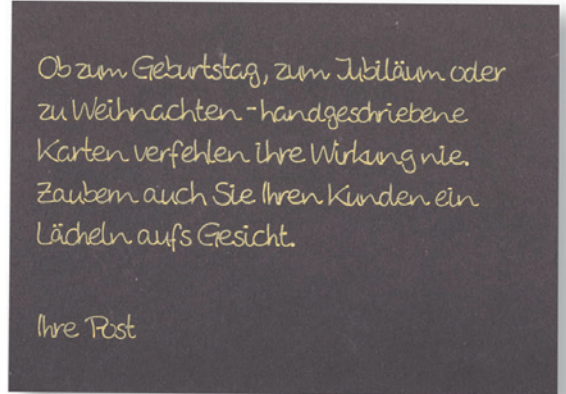 Ob zum Geburtstag, zum Jubiläum oder
zu Weihnachten - handgeschriebene
Karten verfehlen ihre Wirkung nie.
Zaubern auch Sie Ihren Kunden ein
Lächeln aufs Gesicht.
Ihre Post